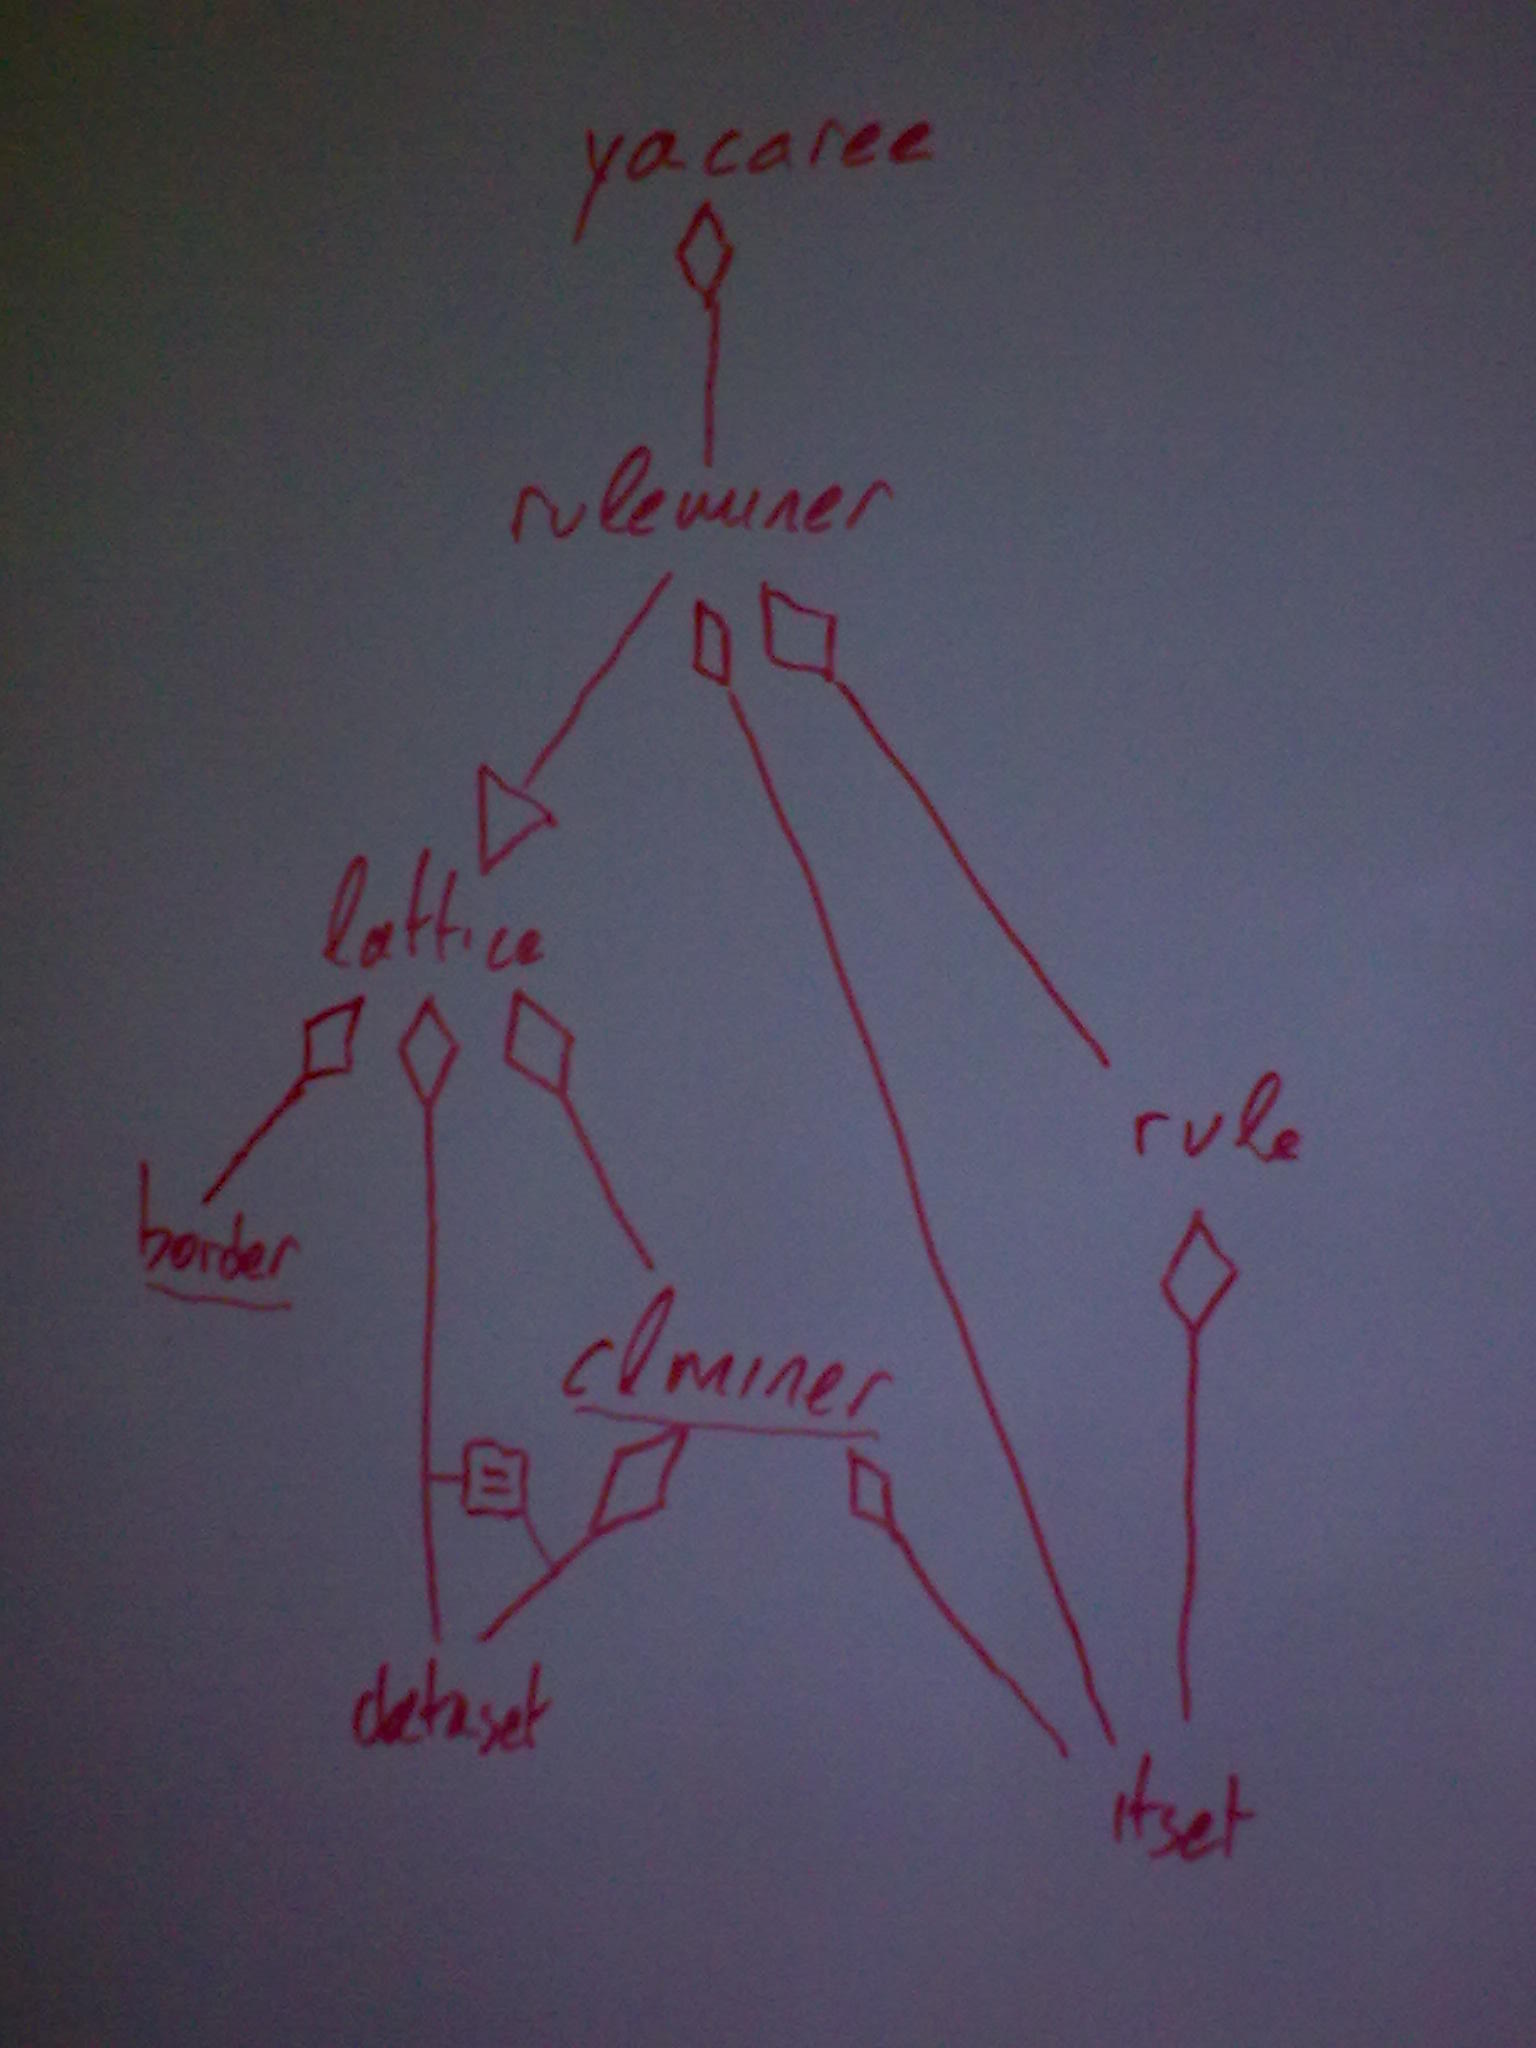 yacaree
ruleminer
lattice
rule
border
clminer
=
dataset
itset